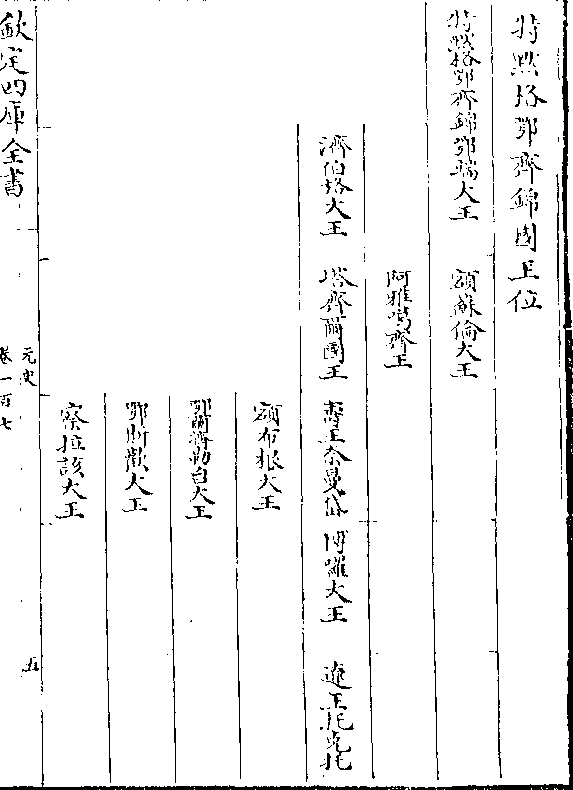 特黙格鄂齊錦國王位
特黙格鄂齊錦鄂端大王　額蘇倫大王
阿雅噶齊王
濟伯格大王　塔齊爾國王　壽王奈曼岱　博囉大王　遼王托克托
額布根大王
鄂爾濟勒白大王
鄂斯歡大王
察拉該大王
欽定四庫全書
元史
卷一百七
五